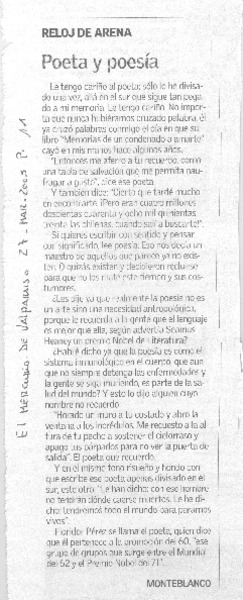 RELOJ DE ARENA
Poeta y poesía
Le tengo cariño al poeta; sólo lo he divisa-
do una vez, allá en el sur que sigue tan pega-
do a mi memoria. No im-
ta que nunca hubiéramos cruzado palabra, él
ya cruzó palabras conmigo el día en que su
libro "Memorias de un condenado a amarte"
cayó en mis manos hace algunos años.
"Entonces me aferro a tu recuerdo, como
una tabla de salvación que me permita nau-
fragar a gusto", dice ese poeta.
Y también dice: "Cierto que tardé mucho
en encontrarte. ¡Pero eran cuatro millones
doscientas cuarenta y ocho mil quinientas
treinta las chilenas, cuando salí a buscarte!".
Si quieres escribir con sentido y pensar
con significado, lee poesía. Eso nos decía un
maestro de aquellos que parece ya no exis-
ten. O quizás existan y decidieron recluirse
para que no los mate este tiempo y sus cos-
tumbres.
¿Les dije ya que realmente la poesía no es
un arte sino una necesidad antropológica,
porque le recuerda a la gente que el lenguaje
es mejor que ella, según advertía Seamus
Heaney un premio Nobel de Literatura?
¿Podré decirlo ya que la poesía es como el
sistema inmunológico en el cuerpo, que aun-
que no siempre detenga las enfermedades y
la gente se siga muriendo, es parte de la sa-
lud del mundo? Y esto lo dijo alguien cuyo
nombre no recuerdo.
"Horado un muro a tu costado y abro la
ventana a los incrédulos. Me recuesto a la al-
tura de tu pecho a sostener el cielorraso y
apago tus párpados para no ver la puerta de
salida". El poeta que recuerdo.
Y en el mismo tono risueño y hondo con
que escribe ese poeta apenas divisado en el
sur, este otro: "Le han dicho: con ese hombre
no tendrán dónde caerse muertos. Le he di-
cho: tendremos todo el mundo para pararnos
vivos".
Floridor Pérez se llama el poeta, quien dice
que él pertenece a la promoción del 60, "ese
grupo de grupos que surge entre el Mundial
del 62 y el Premio Nobel del 71".
MONTEBLANCO
El Mercurio de Valparaíso 27-Mar-2005 P. 11